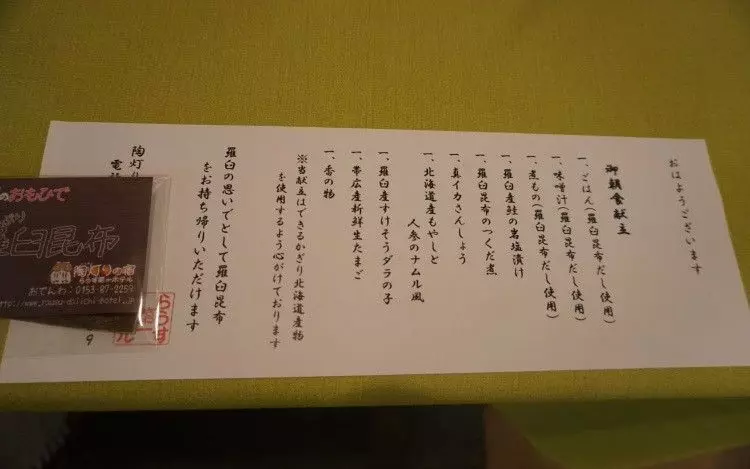 おはようございます
御朝食献立
一、ごはん(羅臼昆布だし使用)
一、味噌汁(羅臼昆布だし使用)
一、煮もの(羅臼昆布だし使用)
一、羅臼産鮭の岩塩漬け
一、羅臼昆布のつくだ煮
一、真イカさんしょう
一、北海道産もやしと
人参のナムル風
一、羅臼産すけそうダラの子
一、帯広産新鮮生たまご
一、香の物
※当献立はできるかぎり北海道産物
を使用するよう心がけております
羅臼の思いでとして羅臼昆布
をお持ち帰りいただけます
陶灯り
電話
9
らうす
のおもひで
臼昆布
陶灯りの宿
おでんわ:0153-87-2259
http://www.rausu-daiichi-hotel.jp